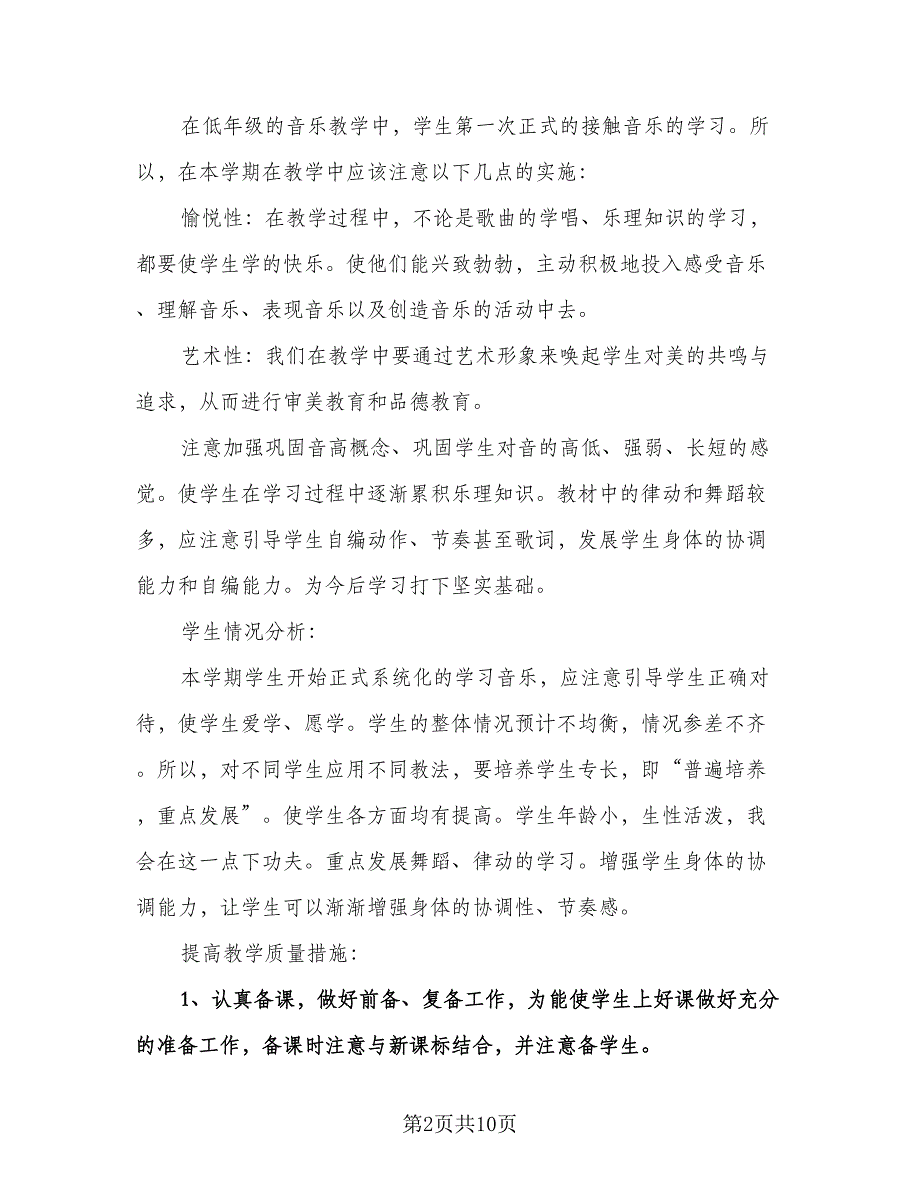 在低年级的音乐教学中，学生第一次正式的接触音乐的学习。所
以，在本学期在教学中应该注意以下几点的实施：
愉悦性：在教学过程中，不论是歌曲的学唱、乐理知识的学习，
都要使学生学的快乐。使他们能兴致勃勃，主动积极地投入感受音乐
、理解音乐、表现音乐以及创造音乐的活动中去。
艺术性：我们在教学中要通过艺术形象来唤起学生对美的共鸣与
追求，从而进行审美教育和品德教育。
注意加强巩固音高概念、巩固学生对音的高低、强弱、长短的感
觉。使学生在学习过程中逐渐累积乐理知识。教材中的律动和舞蹈较
多，应注意引导学生自编动作、节奏甚至歌词，发展学生身体的协调
能力和自编能力。为今后学习打下坚实基础。
学生情况分析：
本学期学生开始正式系统化的学习音乐，应注意引导学生正确对
待，使学生爱学、愿学。学生的整体情况预计不均衡，情况参差不齐
。所以，对不同学生应用不同教法，要培养学生专长，即“普遍培养
，重点发展”。使学生各方面均有提高。学生年龄小，生性活泼，我
会在这一点下功夫。重点发展舞蹈、律动的学习。增强学生身体的协
调能力，让学生可以渐渐增强身体的协调性、节奏感。
提高教学质量措施：
1、认真备课，做好前备、复备工作，为能使学生上好课做好充分
的准备工作，备课时注意与新课标结合，并注意备学生。
第2页共10页